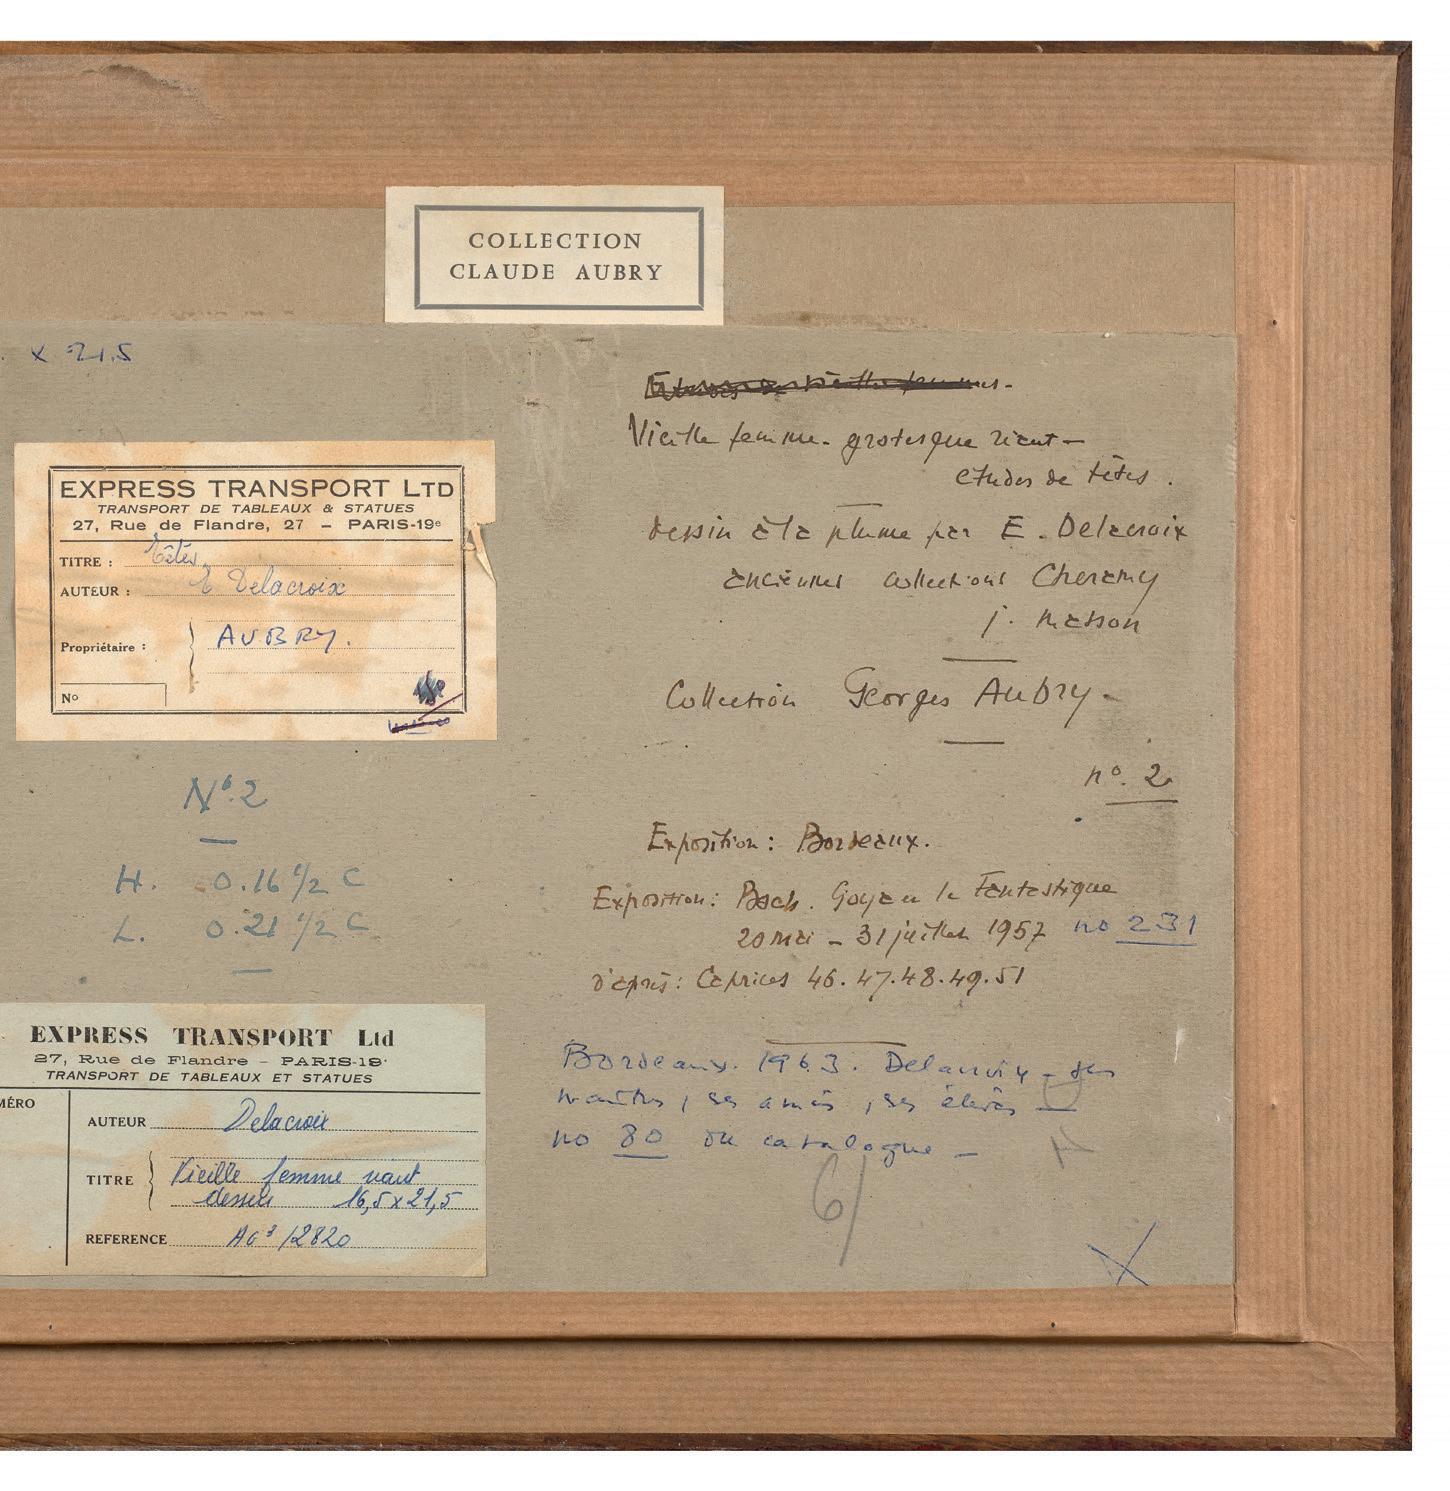 COLLECTION
CLAUDE AUBRY
x 21.5
EXPRESS TRANSPORT LTD
TRANSPORT DE TABLEAUX & STATUES
27, Rue de Flandre, 27 – PARIS-19e
TITRE : Têtes
AUTEUR : E Delacroix
Propriétaire : AUBRY.
No
No. 2
H. 0.16 1/2 C
L. 0.21 1/2 C
EXPRESS TRANSPORT Ltd
27, Rue de Flandre – PARIS-19e
TRANSPORT DE TABLEAUX ET STATUES
MÉRO
AUTEUR Delacroix
TITRE Vieille femme
16,5 x 21,5
REFERENCE AG3 /2820
Etudes de vieille femmes.
Vieille femme grotesque riant –
etudes de têtes.
dessin à la plume par E. Delacroix
anciennes collections Cheramy
j. masson
Collection Georges Aubry –
no. 2
Exposition : Bordeaux.
Exposition : Bosch. Goya et le Fantastique
20 mai – 31 juillet 1957 no 231
d'après : Caprices 46. 47. 48. 49. 51
Bordeaux. 1963. Delacroix – ses
maîtres, ses amis, ses élèves –
no 80 du catalogue –
6/